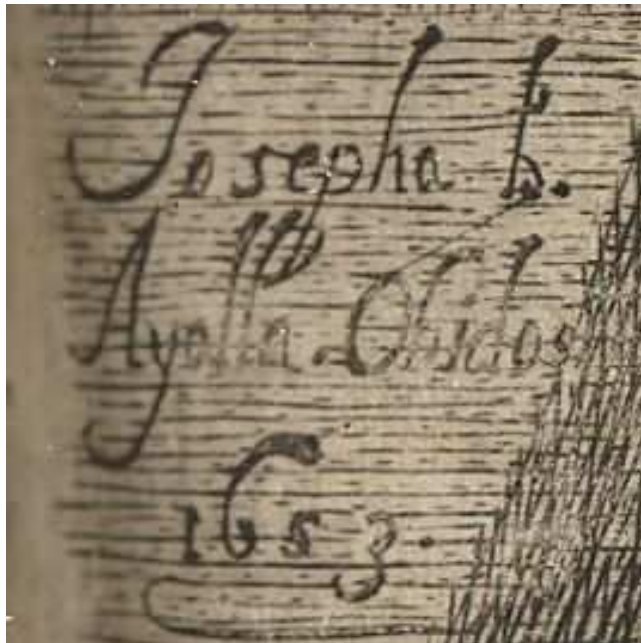 Josepha h.
Ayalla. Obidos
1653.